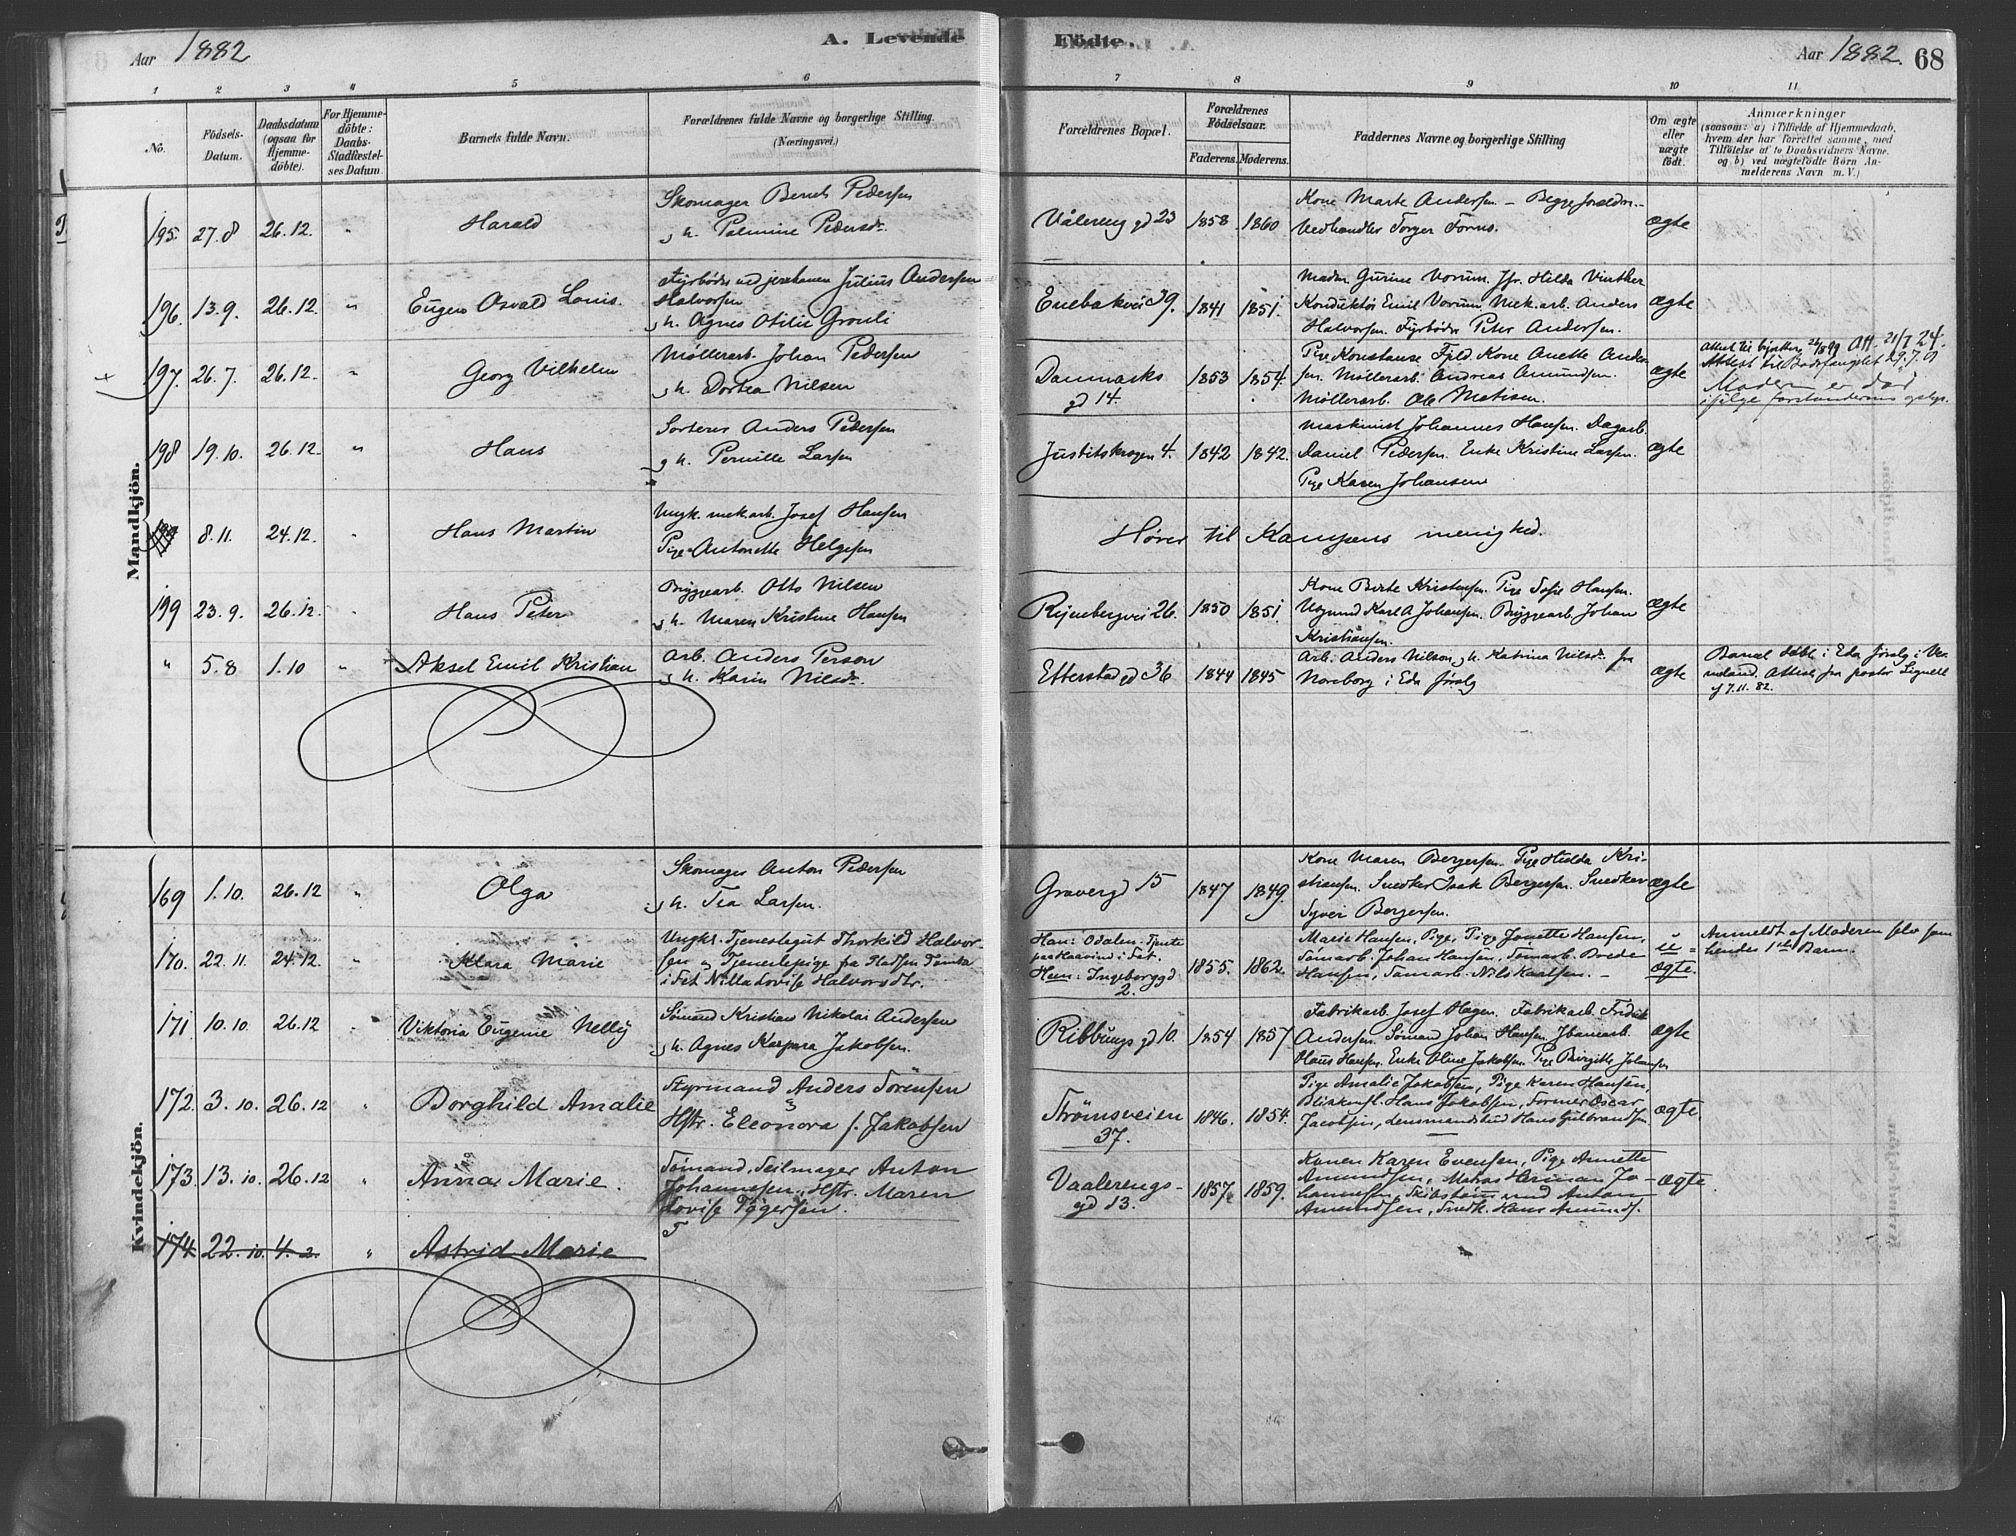 Aar 1882 A. Levende
Födte. Aar 1882. 68
1 2 3 4 5 6
7 8 9 10 11
No.
Födsels-
Datum.
Daabsdatum
(ogsaa for
Hjemme-
döbte).
For Hjemme-
döbte:
Daabs-
Stadfæstel-
ses Datum.
Barnets fulde Navn.
Forældrenes fulde Navne og borgerlige Stilling
(Næringsvei.)
Forældrenes Bopæl.
Forældrenes
Födselsaar.
Faderens. Moderens.
Faddernes Navne og borgerlige Stilling
Om ægte
eller
uægte
födt.
Anmærkninger
(saasom: a) i Tilfælde af Hjemmedaab,
hvem der har forrettet samme, med
Tilföielse af to Daabsvidners Navne,
og b) ved uægtefödte Börn An-
melderens Navn m. V.)
Mandkjön.
195. 27.8 26.12. " Harald
Skomager Bernt Pedersen
og h. Palmine Pedersdr.
Vålereng gd 23 1858 1860
Kone Marte Andersen - Begge forældre -
Vedhandler Torger Torns.
ægte
196. 13.9. 26.12. " Eugen Osvald Louis.
Fyrbøder ved jernbanen Julius Andersen
Halvorsen
og h. Agnes Otilie Grouli
Enebakvei 39. 1841 1851.
Madm Gurine Vorum. Jfr. Hilda Vinther
Konduktør Emil Vorum. Mek.arb. Anders
Halvorsen. Fyrbøder Peter Andersen.
ægte
197. 26.7. 26.12. " Georg Vilhelm
Møllerarb. Johan Pedersen
og h. Dortea Nilsen
Danmarks
gd 14. 1853 1854.
Pige Konstanse Fjeld Kone Anette Ander-
sen. Møllerarb. Andreas Amundsen.
Møllerarb. Ole Matisen.
ægte
Att. 21/7 24.
Attest til Bodsfængslet 29.7.01
Moderen er død
ifølge forstanderens oplys.
198 19.10. 26.12. " Hans
Sorterer Anders Pedersen
og h. Pernille Larsen
Justitskrogen 4. 1842 1842.
Maskinist Johannes Hansen. Dagarb.
Daniel Pedersen. Enke Kristine Larsen.
Pige Karen Johansen
ægte
8.11. 24.12. " Hans Martin
Ungk. mek.arb. Josef Hansen
Pige Antonette Helgesen
Hører til Kampens menighed.
199 23.9. 26.12. " Hans Peter
Bryggearb. Otto Nilsen
og h. Maren Kristine Hansen
Rijnebergvei 26. 1850 1851.
Kone Berte Kristensen. Pige Sofie Hansen.
Ugmand Karl A Johansen. Bryggearb. Johan
Kristiansen.
ægte
" 5.8 1.10 " Aksel Emil Kristian
Arb. Anders Person
og h. Karin Nilsdr.
Etterstad gd 36 1844 1845
Arb. Anders Nilson, og h. Katrina Nilsdr. fra
Noreborg i Eda forslg
ægte
Barnet døbt i Eda forslg i Ver-
meland. Attest fra pastor Lignell
af 7.11.82.
Kvindekjön.
169 1.10. 26.12 " Olga
Skomager Anton Pedersen
og h. Tea Larsen.
Gravergd 15 1847 1849.
Kone Maren Bergersen. Pige Hulda Kri-
stiansen. Snedker Isak Bergersen. Snedker
Syver Bergersen.
ægte
170. 22.11. 24.12. " Klara Marie
Ungkr. Tjenestegut Thorkild Halvor-
sen og Tjenestepige fra Pladsen
i Fet Nilla Lovise Halvorsdtr.
Han: Odalen. Tjente
i Fet.
Hun: Ingeborggd
2. 1855. 1862.
Marie Hansen, Pige, Pige Janette Hansen,
Tømarb. Johan Hansen, Tømarb. Brede
Hansen, Tømarb. Nils Karlsen. -
u =
ægte.
Anmeldt af Moderen selv som
hendes 1ste Barn.
171. 10.10. 26.12 " Viktoria Eugenie Nelly
Sømand Kristian Nikolai Andersen
og h. Agnes Kaspara Jakobsen.
Ribbungs gd 10. 1854 1857
Fabrikarb. Josef Hagen. Fabrikarb. Fredrik
Andersen. Sømand Johan Hansen. Jbanearb.
Hans Hansen. Enke Oline Jakobsen. Pige Birgitte Johansen
ægte
172. 3.10. 26.12 " Borghild Amalie
Styrmand Anders Sørensen
og
Hstr. Eleonora f. Jakobsen
Strømsveien
37. 1846. 1854.
Pige Amalie Jakobsen, Pige Karen Hansen,
Blikkensl. Hans Jakobsen, Former Oscar
Jacobsen, Lensmandsbud Hans Gulbrandsen
ægte.
173. 13.10. 26.12 " Anna Marie.
Sømand, Seilmager Anton
Johannesen, Hstr. Maren
Lovise Tøgersen.
Vaalerengs-
gd 13. 1857. 1859.
Konen Karen Evensen, Pige Annette
Amundsen, Matros Herman Jo-
hannesen, Skibstømmermd Anton
Amundsen, Snedk. Hans Amunds.
ægte.
174. 22.10. 4.2. " Astrid Marie